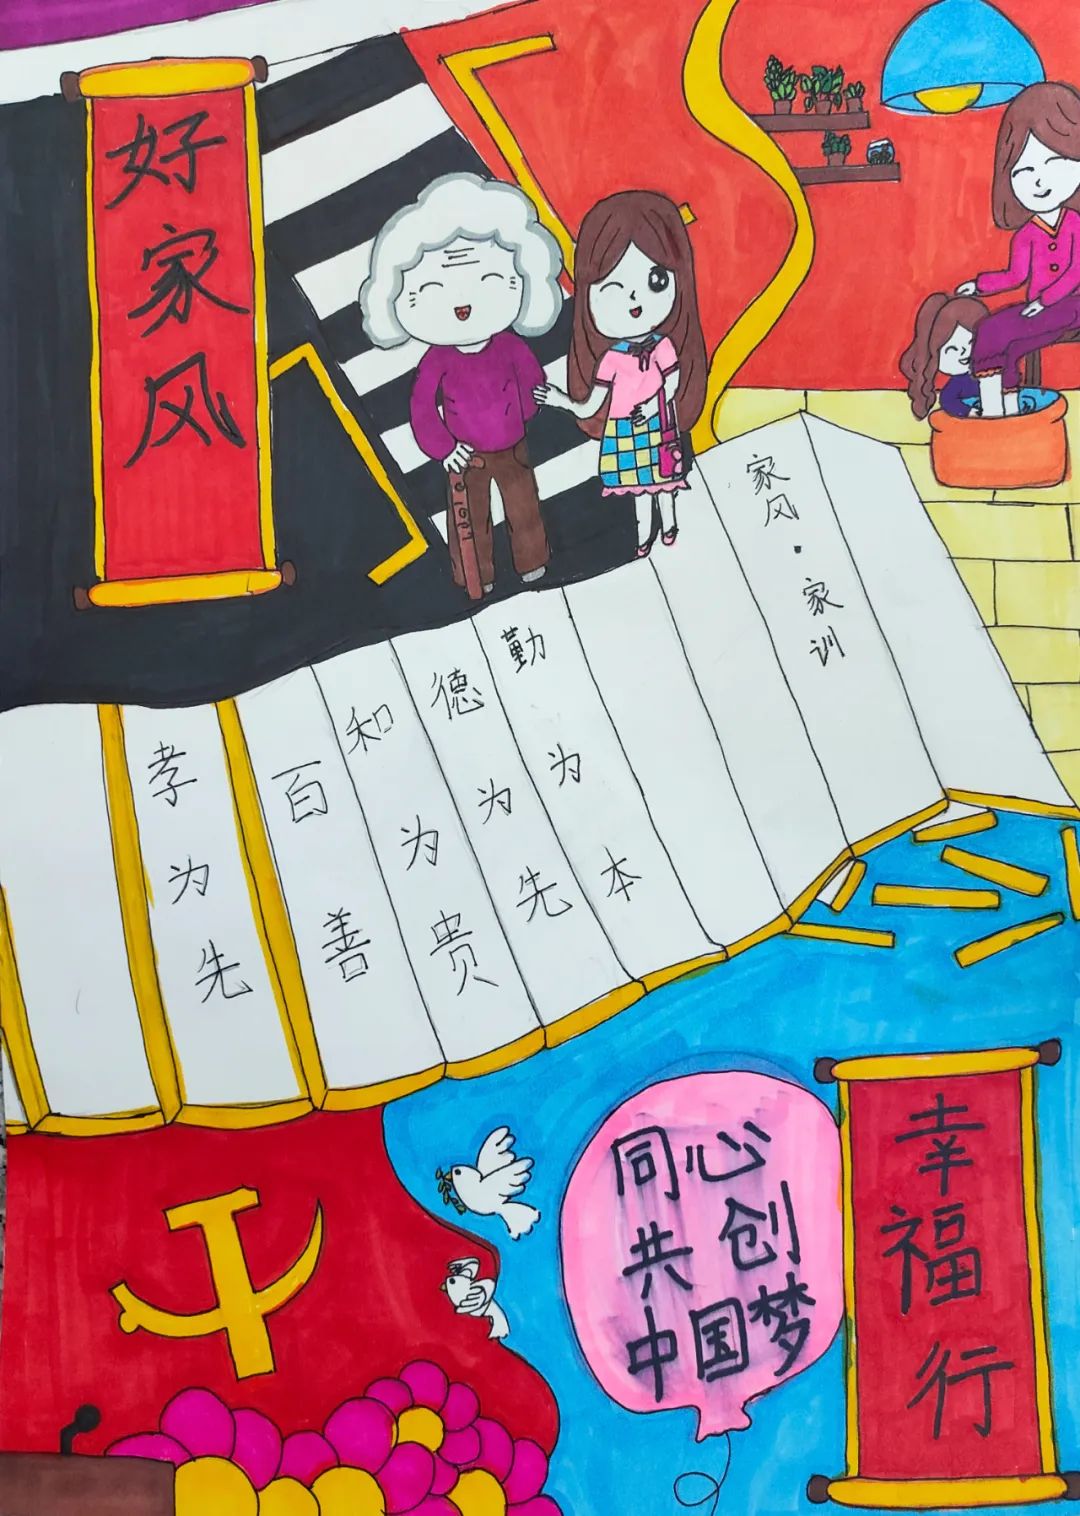 好家风
家风·家训
勤为本
德为先
和为贵
百善
孝为先
同心
共创
中国梦
幸福行